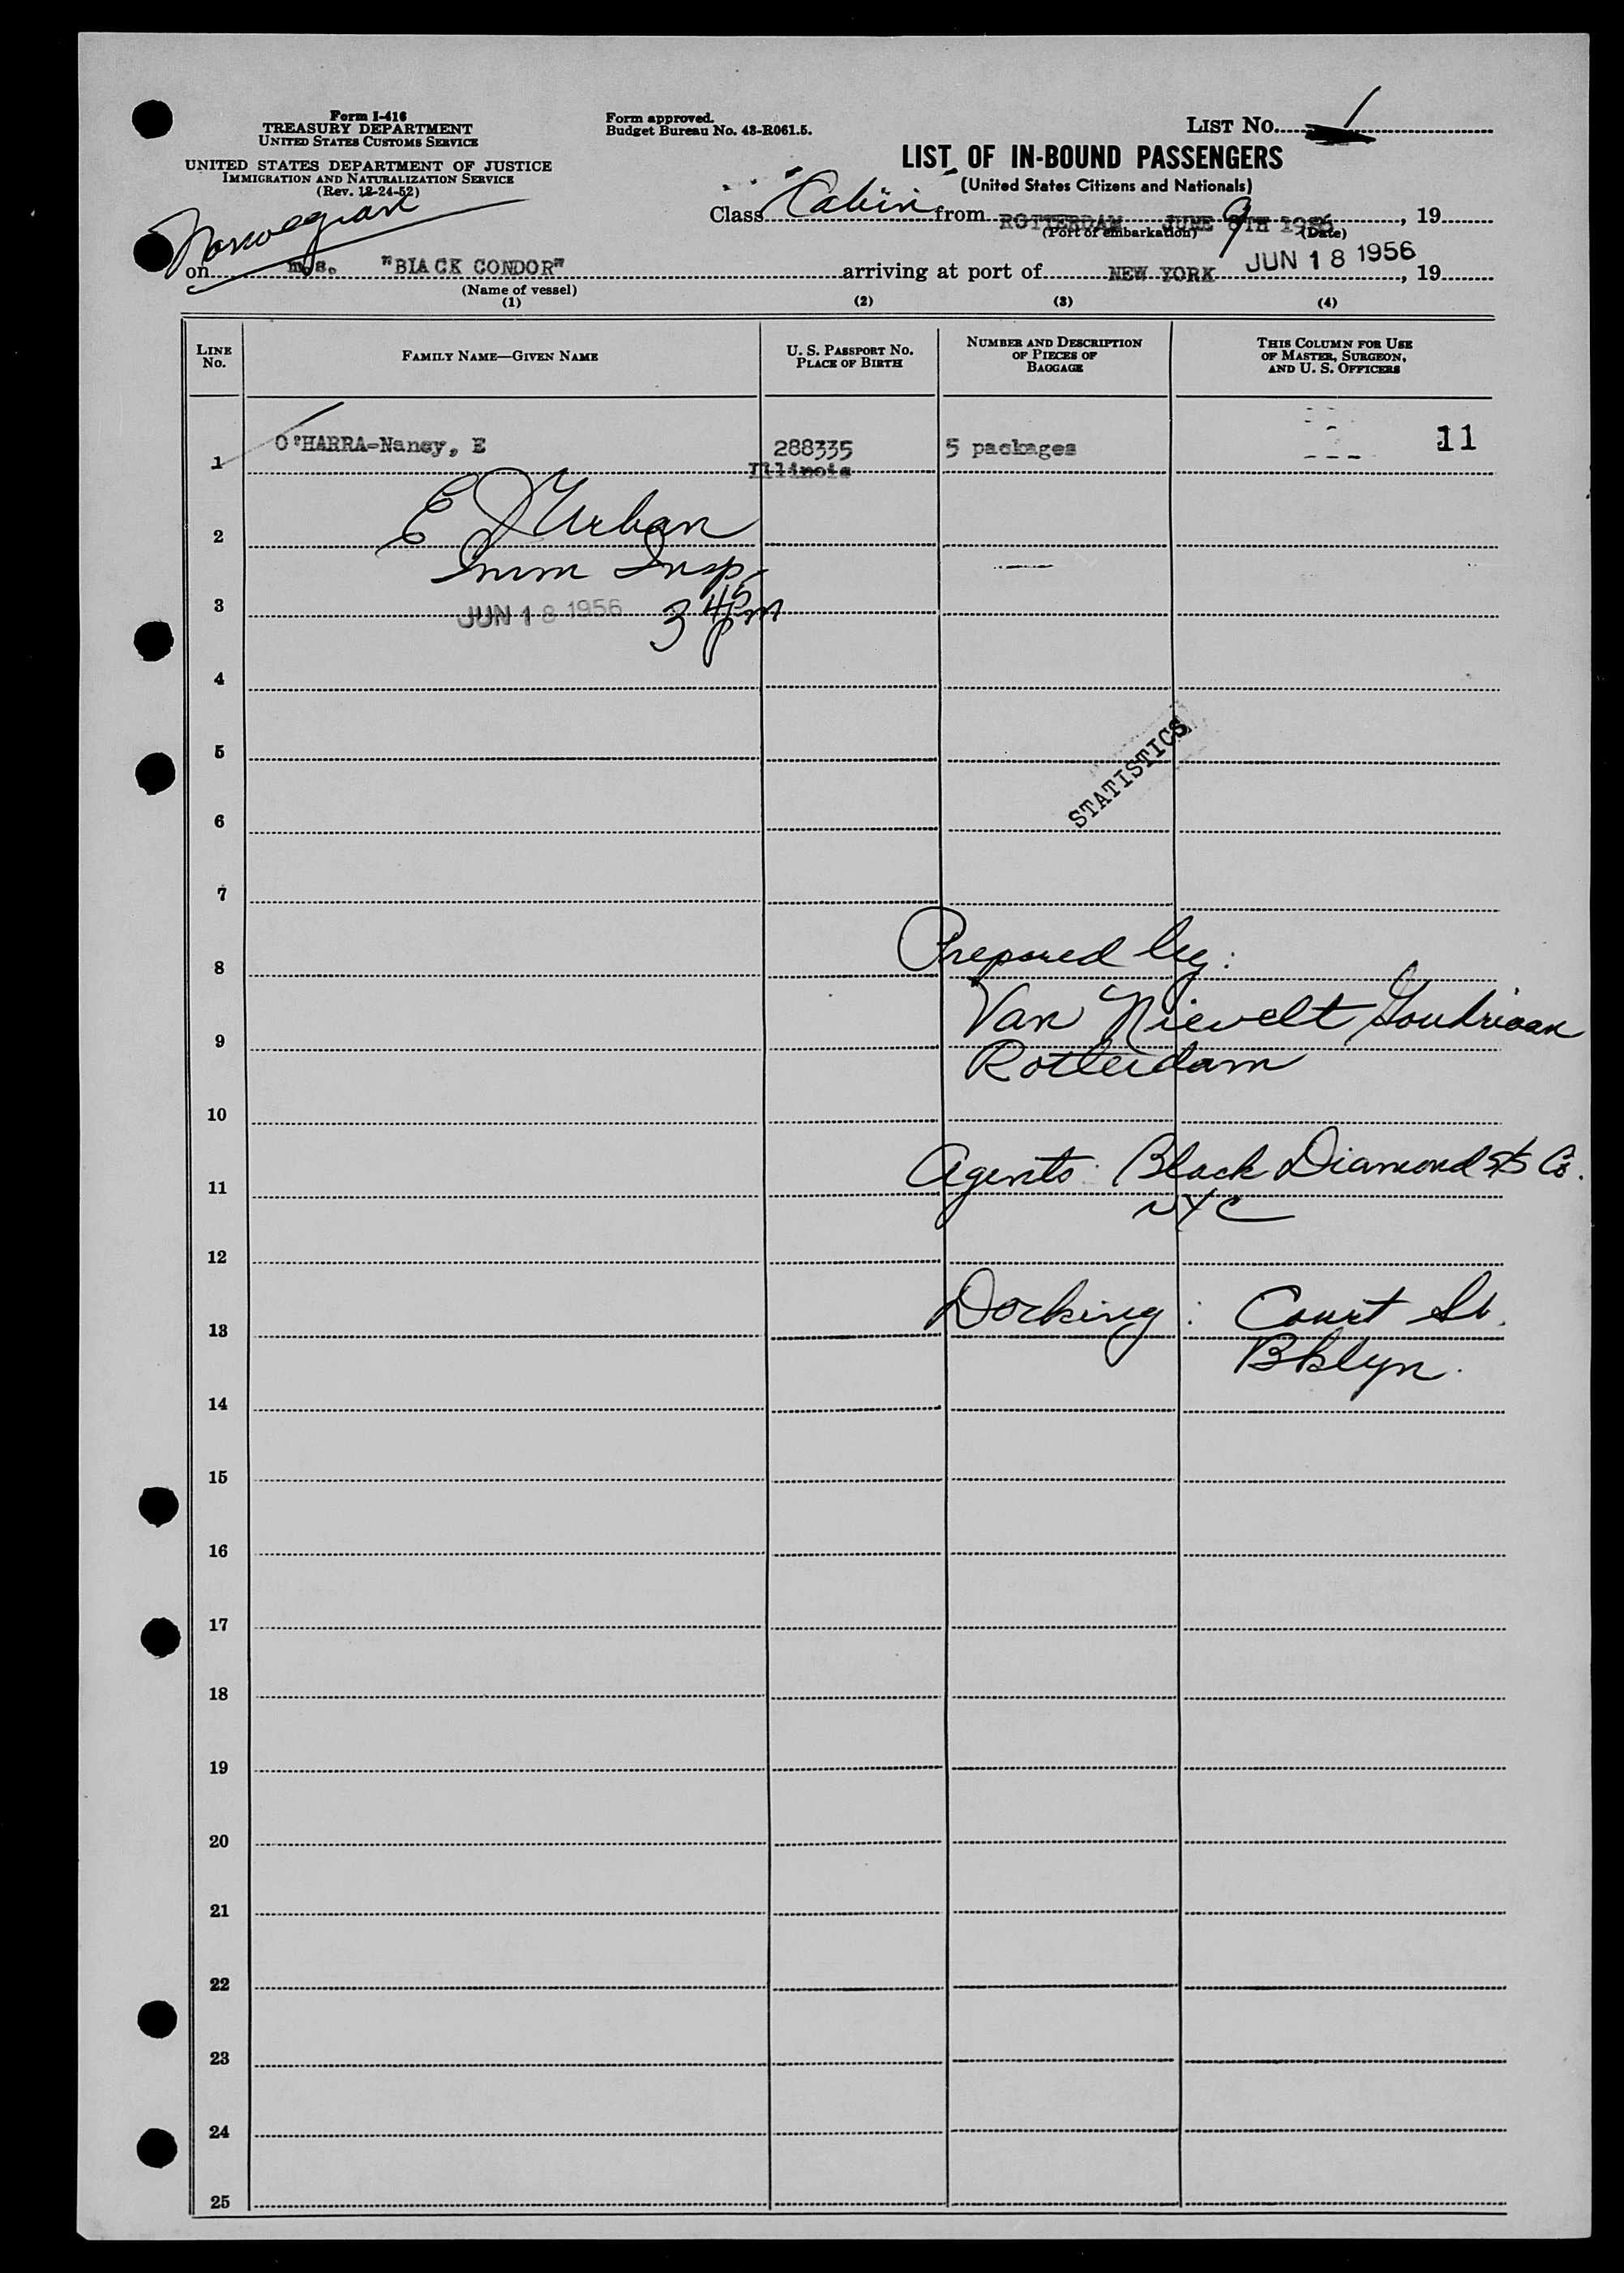 Form I-416
TREASURY DEPARTMENT
UNITED STATES CUSTOMS SERVICE
UNITED STATES DEPARTMENT OF JUSTICE
IMMIGRATION AND NATURALIZATION SERVICE
(Rev. 12-24-52)
Form approved.
Budget Bureau No. 43-R061.5.
LIST No. 1
LIST OF IN-BOUND PASSENGERS
(United States Citizens and Nationals)
Norwegian
Class "Cabin" from ROTTERDAM JUNE 9 TH 1956, 19
(Port of embarkation) (Date)
on m.s. "BLACK CONDOR" arriving at port of NEW YORK JUN 18 1956, 19
(Name of vessel)
(1) (2) (3) (4)
LINE No. FAMILY NAME—GIVEN NAME U. S. PASSPORT No. PLACE OF BIRTH NUMBER AND DESCRIPTION OF PIECES OF BAGGAGE THIS COLUMN FOR USE OF MASTER, SURGEON, AND U. S. OFFICERS
1 O'HARRA-Nancy, E 288335 5 packages 11
Illinois
E J Urban
2
Imm Insp
3 JUN 18 1956 3 45 pm
4
5
STATISTICS
6
7
Prepared by:
8
Van Nievelt Goudriaan
9
Rotterdam
10
Agents: Black Diamond SS Co.
11
NYC
12
Docking: Court St.
13
Bklyn.
14
15
16
17
18
19
20
21
22
23
24
25